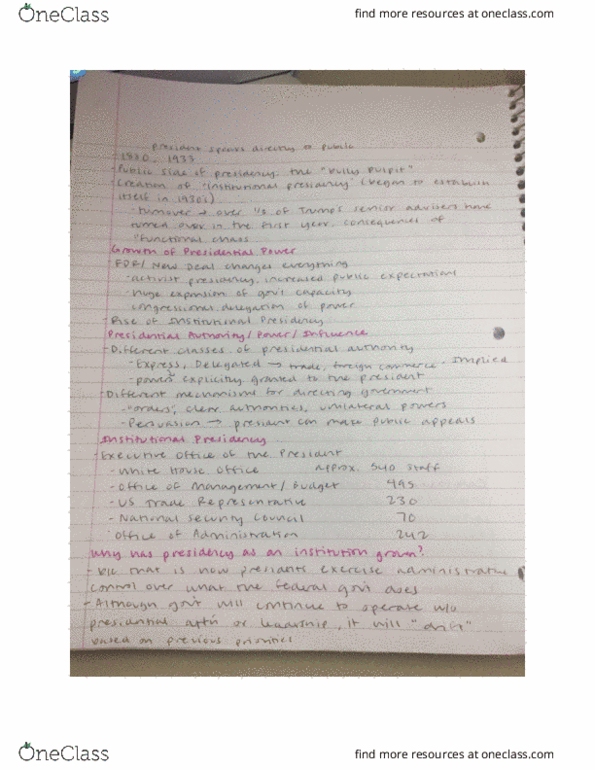 OneClass
find more resources at oneclass.com
president speaks directly to public
1930, 1933
- Public side of presidency: the "Bully Pulpit"
- Creation of "institutional presidency" (began to establish
itself in 1930's)
- turnover → over 1/3 of Trump's senior advisers have
turned over in the first year, consequences of
"functional chaos
Growth of Presidential Power
- FDR/New Deal changes everything
- activist presidency, increased public expectations
- huge expansion of gov't capacity
congressional delegation of power
- Rise of Institutional Presidency
Presidential Authority/Power/Influence
- Different classes of presidential authority
- Express, Delegated → trade, foreign commerce, Implied
- powers explicitly granted to the president
- Different mechanisms for directing government
- "orders", clear authorities, unilateral powers
- Persuasion → president can make public appeals
Institutional Presidency
- Executive Office of the President
- White House Office approx. 540 staff
- Office of Management/Budget 495
- US Trade Representative 230
- National Security Council 70
Office of Administration 242
Why has presidency as an institution grown?
- b/c that is how presidents exercise administrative
control over what the federal gov't does
- Although gov't will continue to operate w/o
presidential att'n or leadership, it will "drift"
based on previous priorities
OneClass
find more resources at oneclass.com